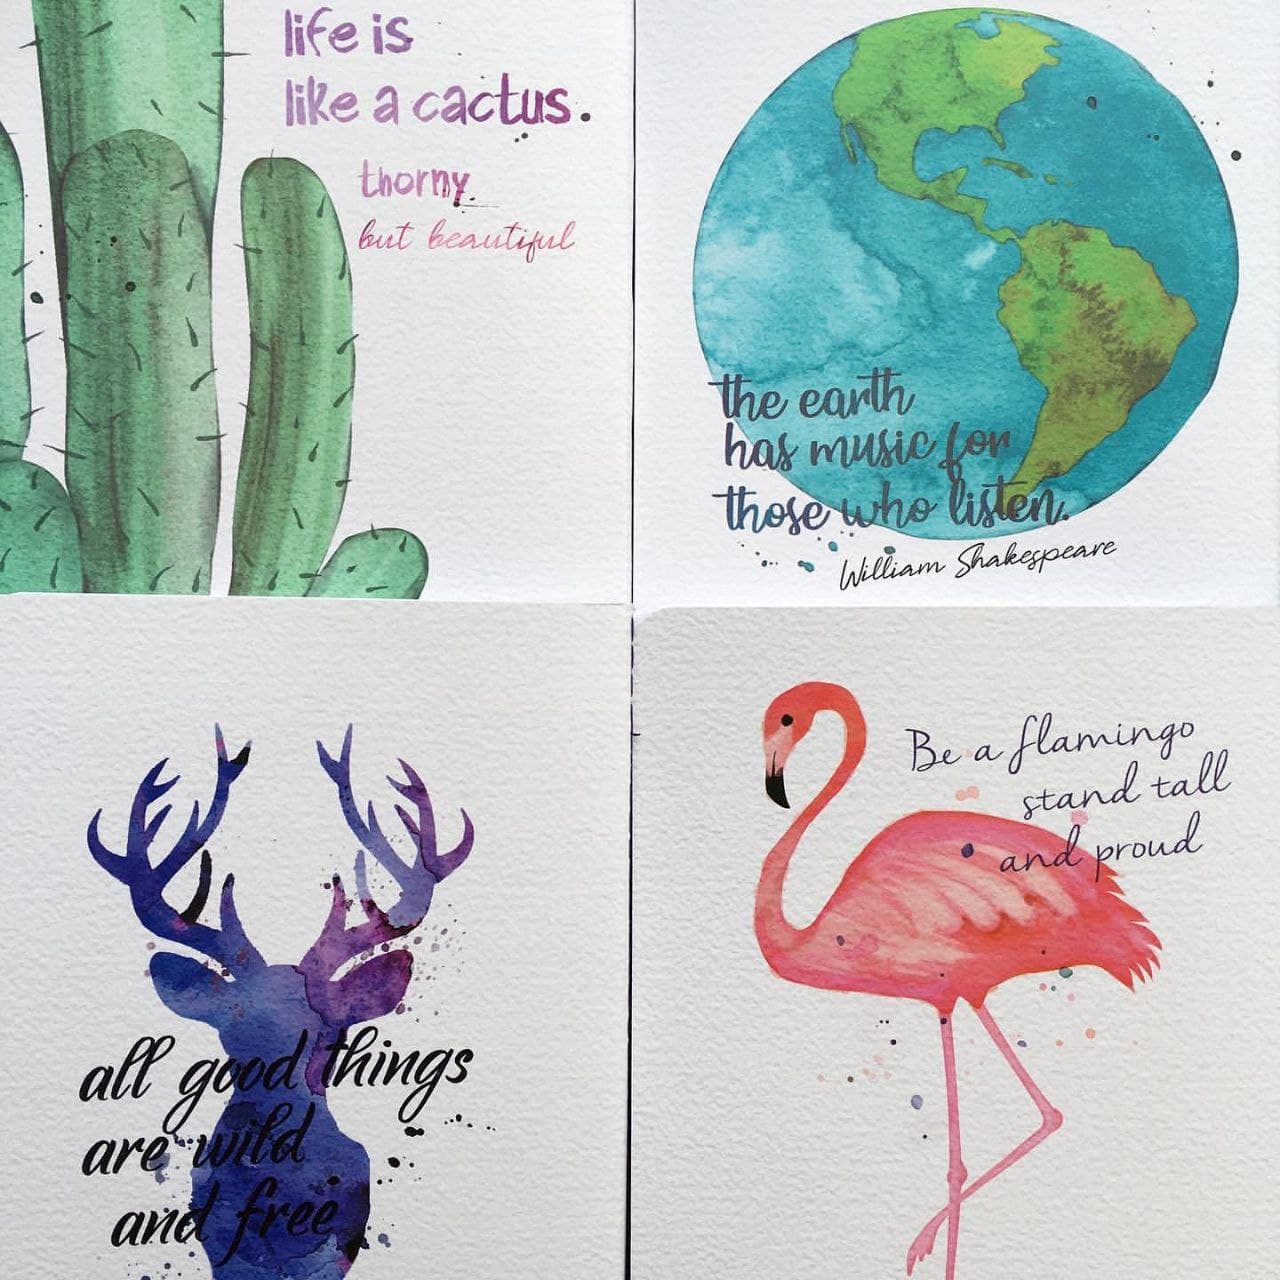 life is
like a cactus.
thorny
but beautiful
the earth
has music for
those who listen.
William Shakespeare
all good things
are wild
and free
Be a flamingo
stand tall
and proud